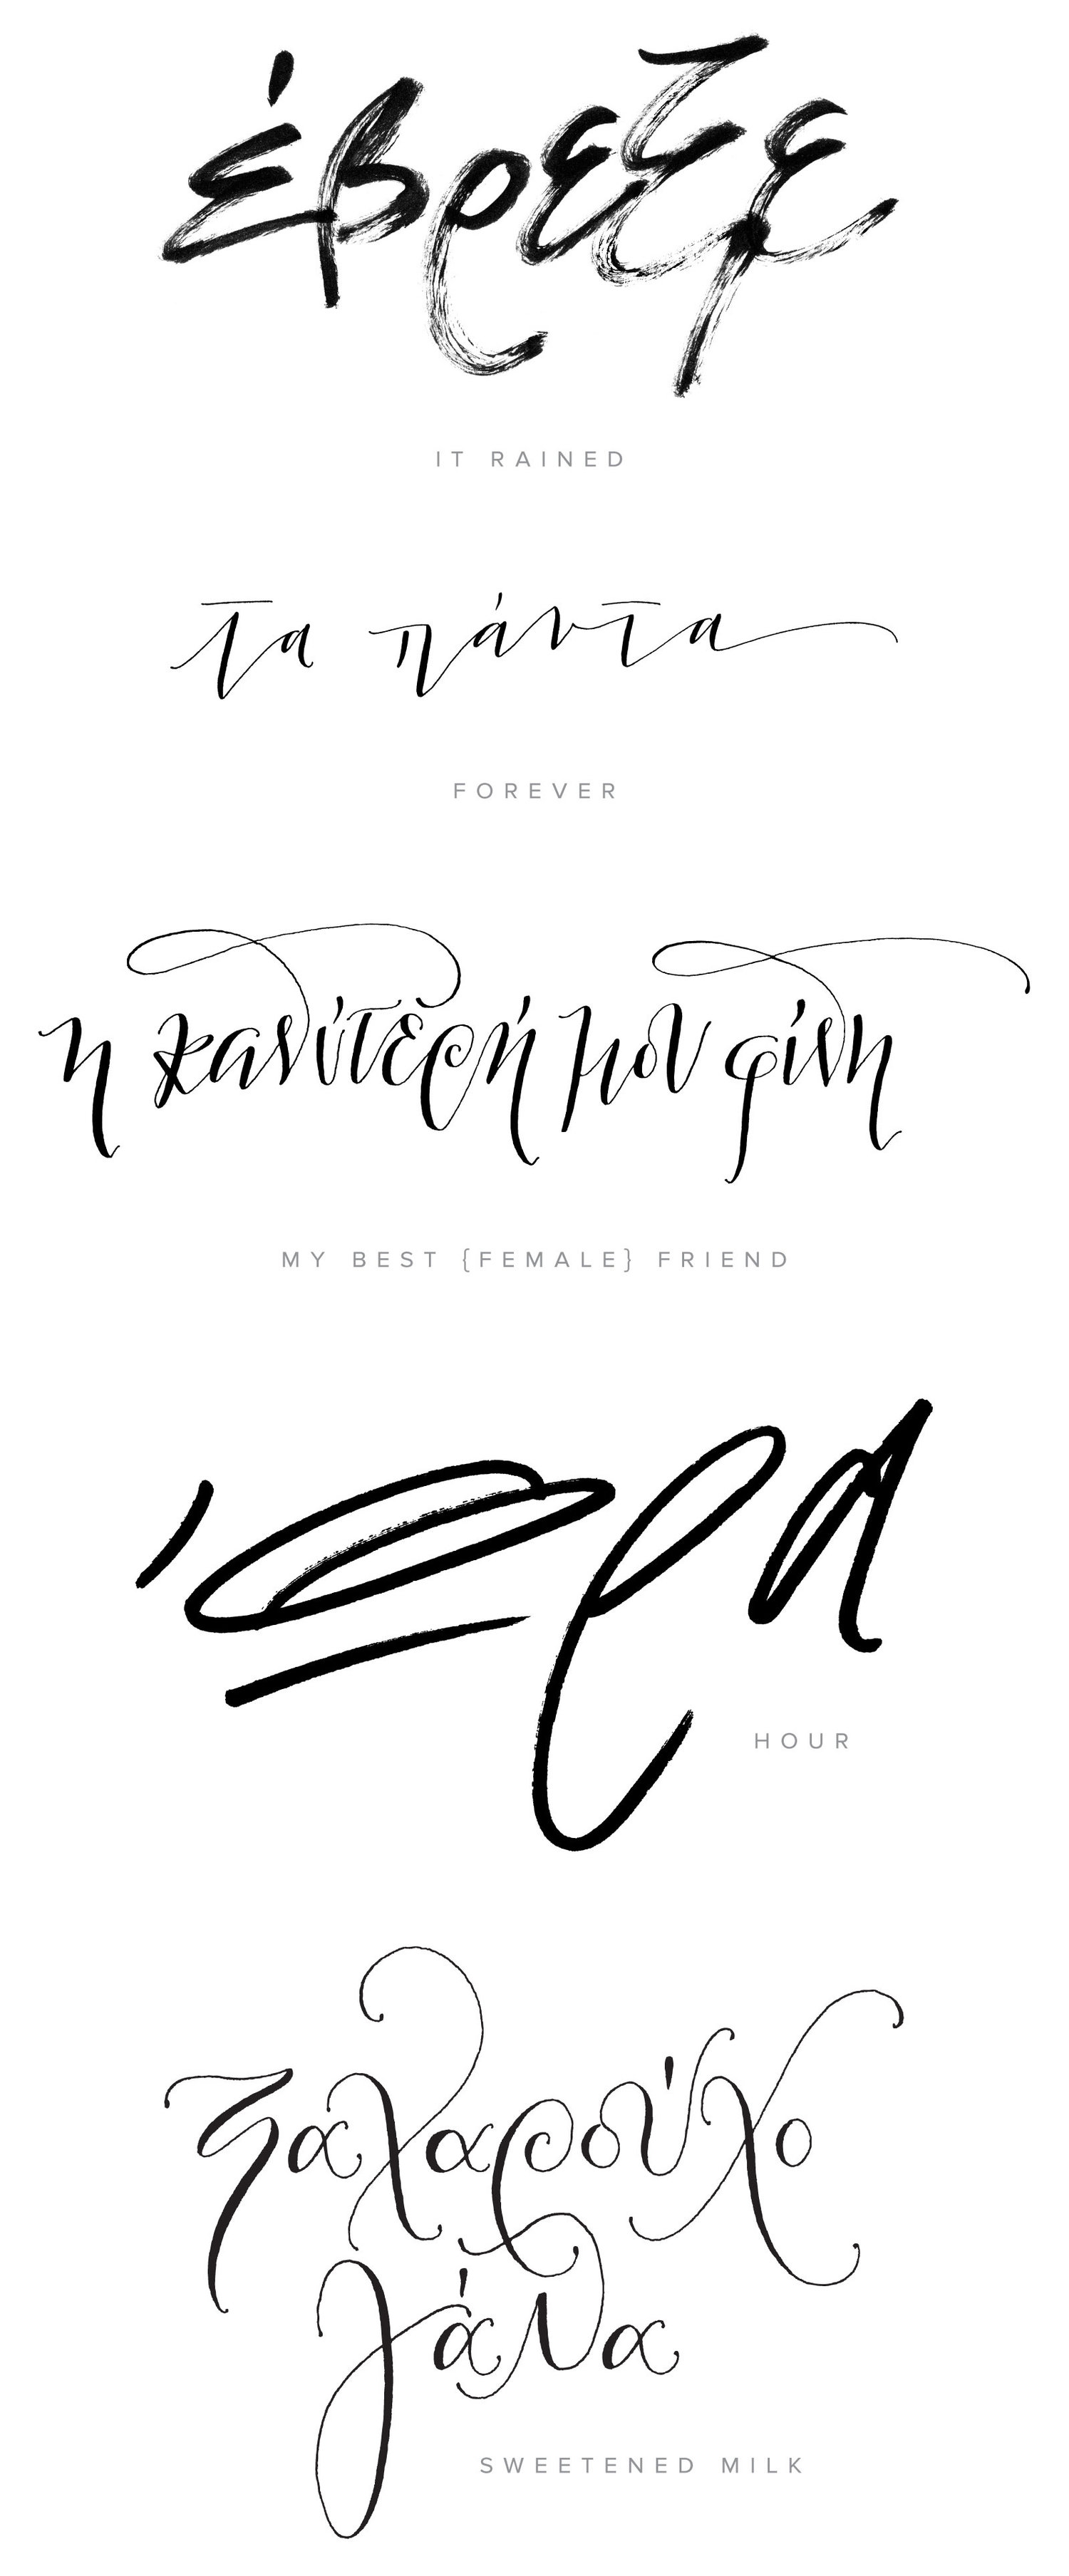 έβρεξε
IT RAINED
τα πάντα
FOREVER
η καλύτερή μου φίλη
MY BEST {FEMALE} FRIEND
ώρα
HOUR
ζαχαρούχο
γάλα
SWEETENED MILK